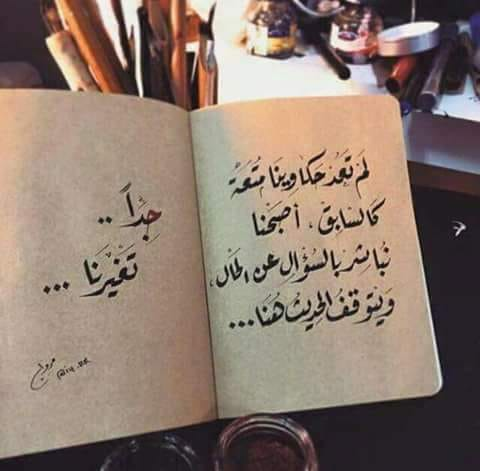 لَم تَعُد حَكاوينا مُتعَة
كَالسابق ، أصبَحنَا
نُباشر بالسُؤالِ عن الحَال ،
وَيتوقفُ الحَديث هُنا ...
جِداً ..
تَغيّرنَا ...